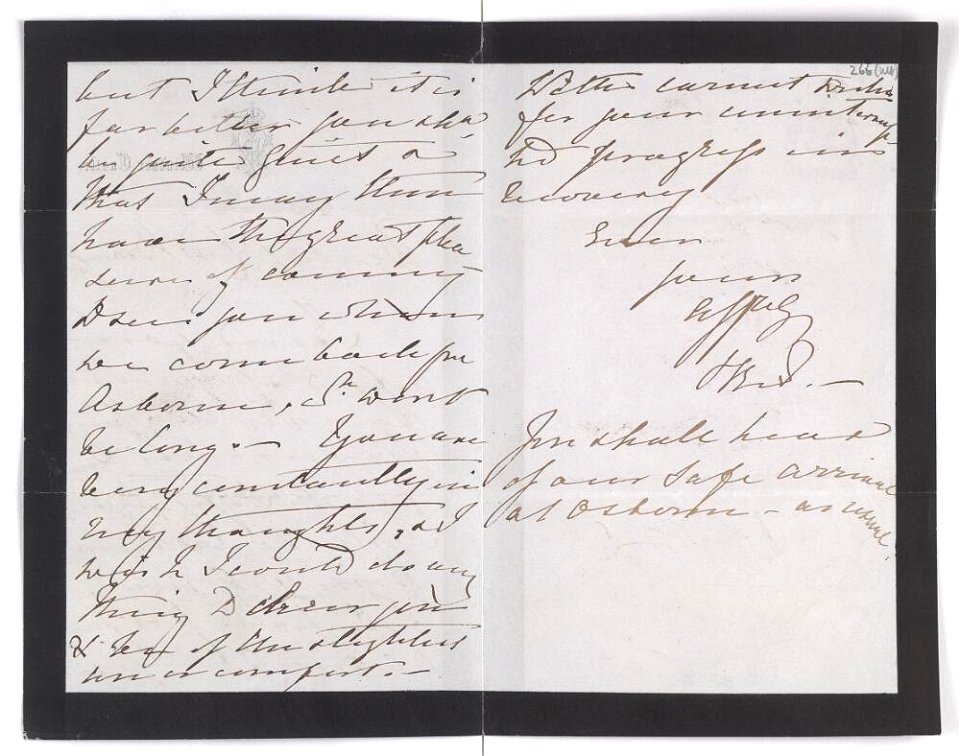 but I think it is
far better you shd
be quite quiet &
that I may then
have the great plea
sure of coming
to see you when
we come back fm
Osborne, wh won't
be long. — You are
very constantly in
my thoughts, & I
wish I could do any
thing to cheer you
& be of the slightest
use or comfort. —
266
Better cannot
for your uninterrup
ted progress in
recovery
Ever
yours
affly
VRI. —
You shall hear
of our safe arrival
at Osborne — as usual.